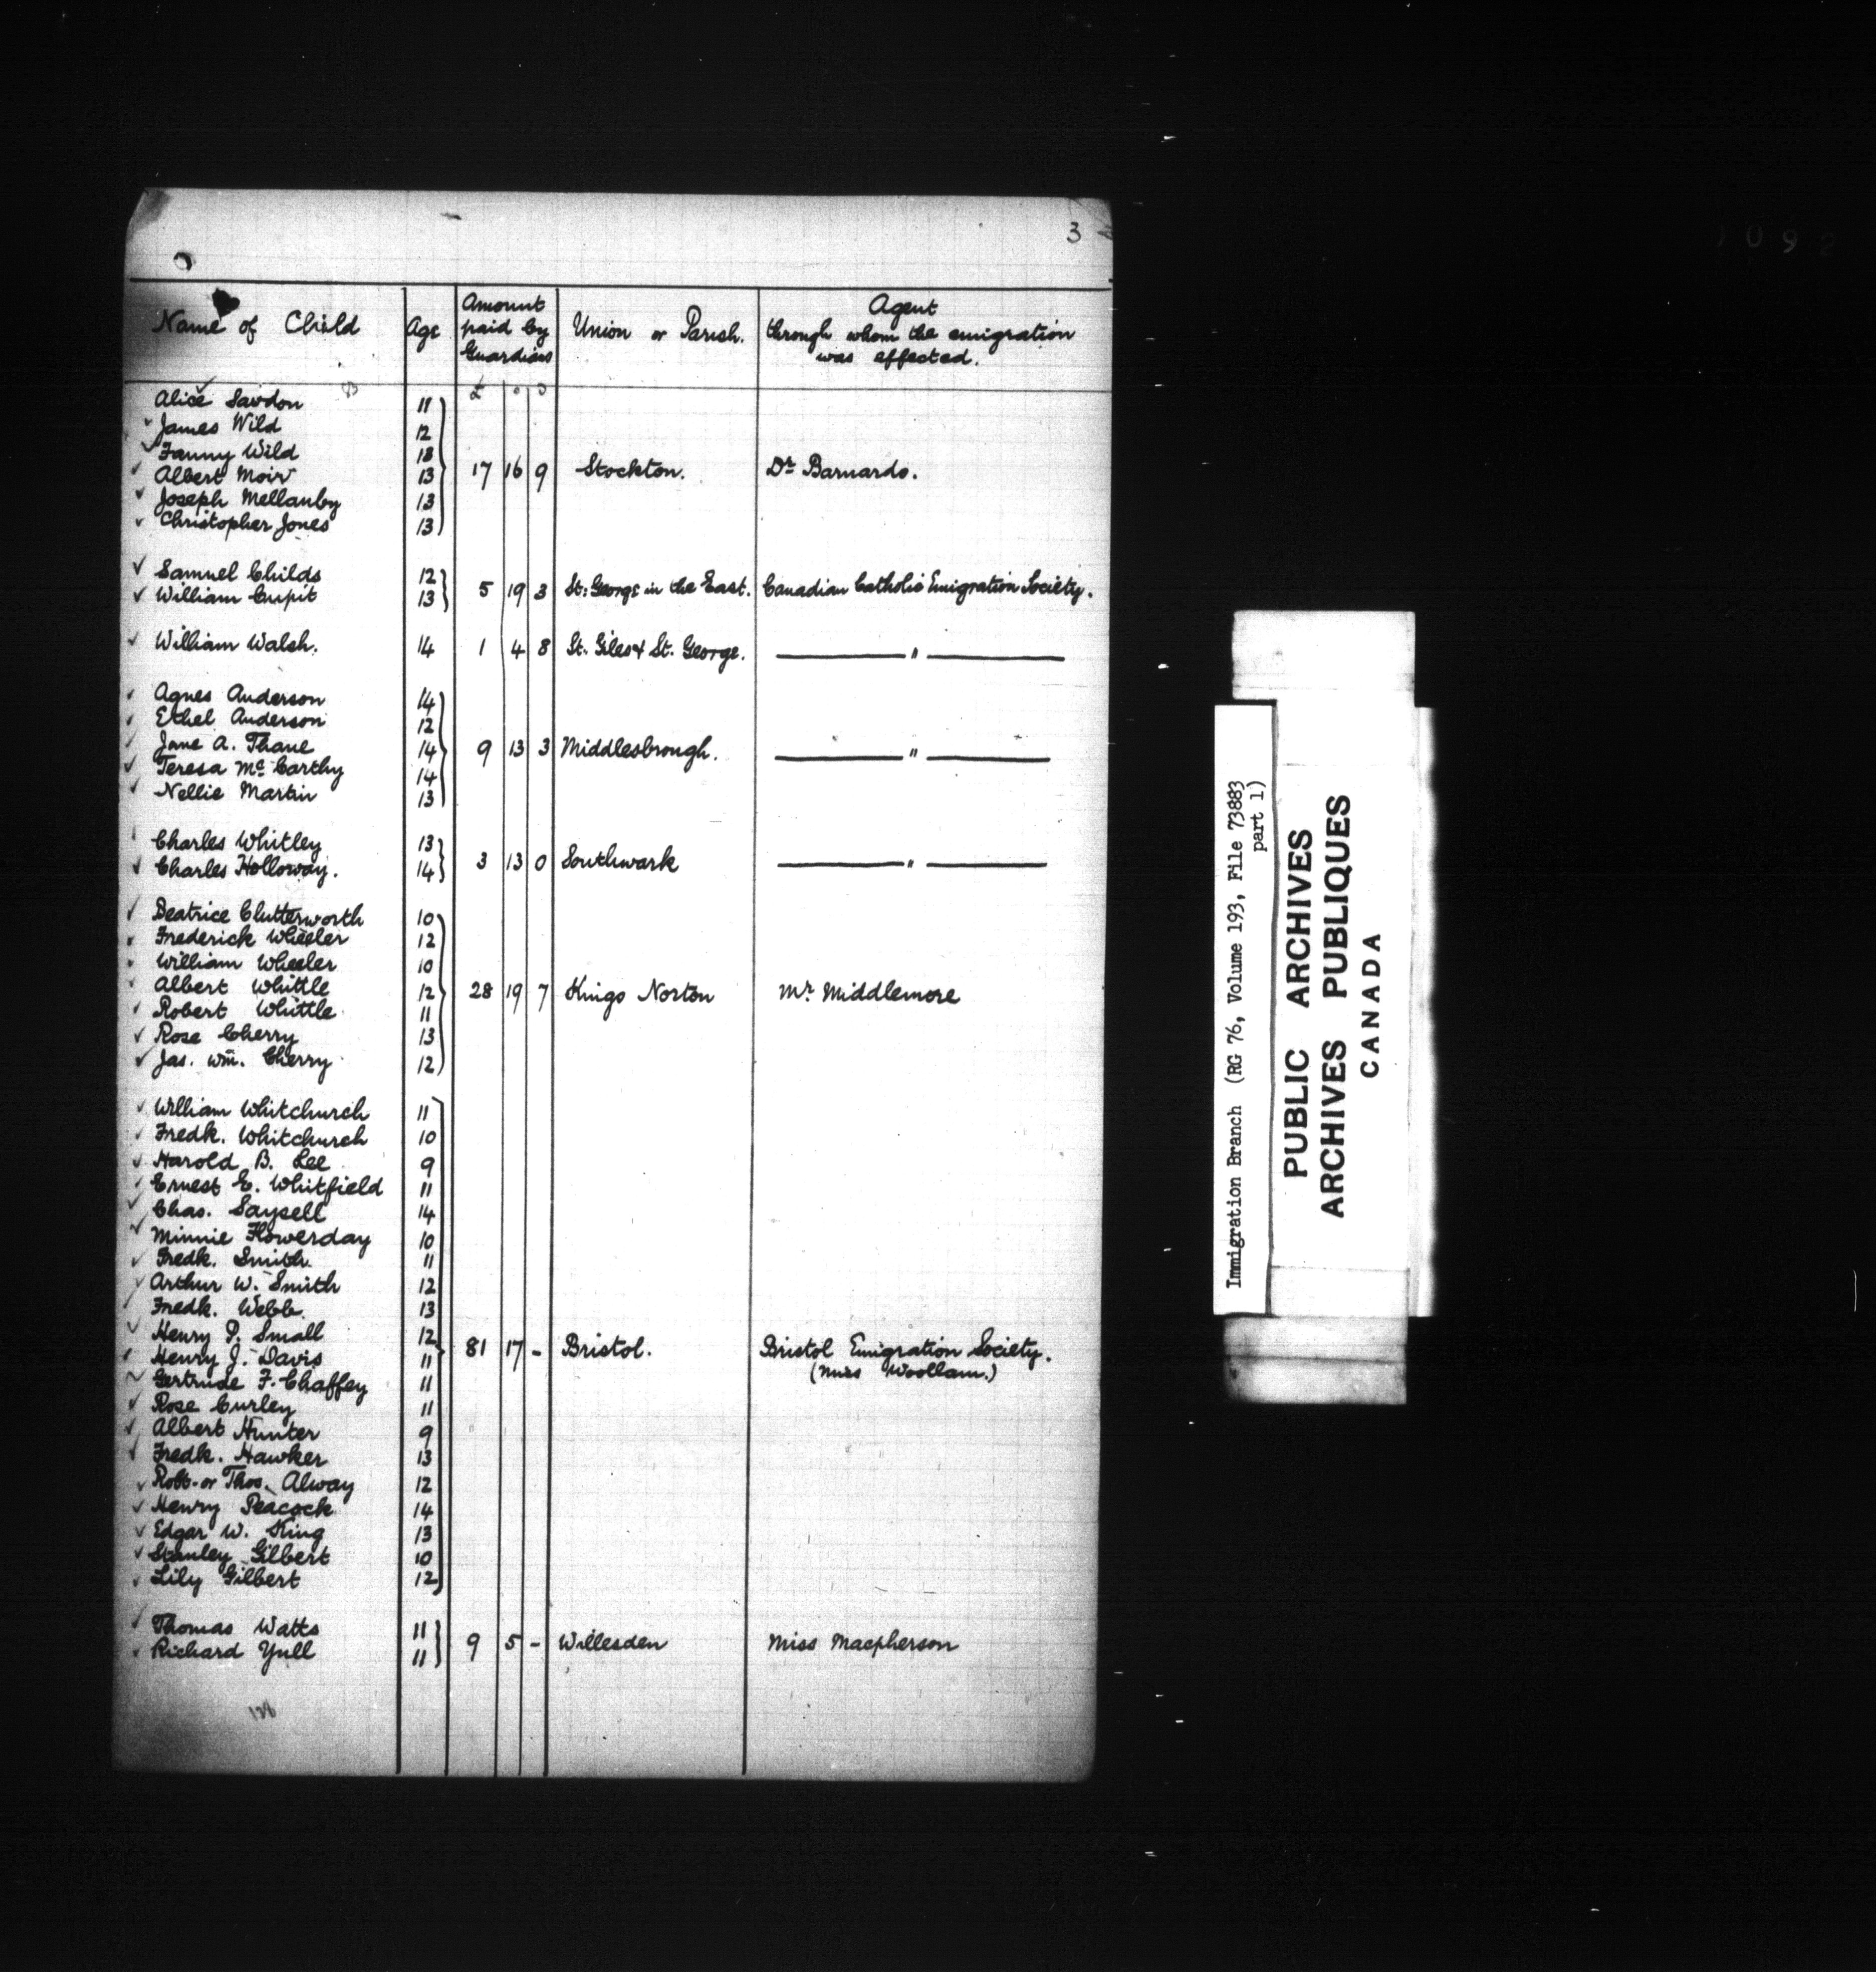 3
Name of Child | Age | Amount paid by Guardians | Union or Parish. | Agent through whom the emigration was effected.
£
Alice Sawdon 11
James Wild 12
Fanny Wild 13
Albert Moir 13 17 16 9 Stockton. Dr Barnardo.
Joseph Mellanby 13
Christopher Jones 13
Samuel Childs 12
William Cupit 13 5 19 3 St: George in the East. Canadian Catholic Emigration Society.
William Walsh. 14 1 4 8 St. Giles & St. George. — " —
Agnes Anderson 14
Ethel Anderson 12
Jane A. Thane 14 9 13 3 Middlesbrough. — " —
Teresa McCarthy 14
Nellie Martin 13
Charles Whitley 13
Charles Holloway. 14 3 13 0 Southwark — " —
Beatrice Clutterworth 10
Frederick Wheeler 12
William Wheeler 10
Albert Whittle 12 28 19 7 Kings Norton Mr Middlemore
Robert Whittle 11
Rose Cherry 13
Jas. Wm. Cherry 12
William Whitchurch 11
Fredk. Whitchurch 10
Harold B. Lee 9
Ernest E. Whitfield 11
Chas. Saysell 14
Minnie Flowerday 10
Fredk. Smith. 11
Arthur W. Smith 12
Fredk. Webb. 13
Henry P. Small 12
Henry J. Davis 11 81 17 - Bristol. Bristol Emigration Society.
(Miss Woollam.)
Gertrude F. Chaffey 11
Rose Curley 11
Albert Hunter 9
Fredk. Hawker 13
Robt. or Thos. Alway 12
Henry Peacock 14
Edgar W. King 13
Stanley Gilbert 10
Lily Gilbert 12
Thomas Watts 11
Richard Yull 11 9 5 - Willesden Miss Macpherson
Immigration Branch (RG 76, Volume 193, File 73883
part 1)
PUBLIC ARCHIVES
ARCHIVES PUBLIQUES
CANADA